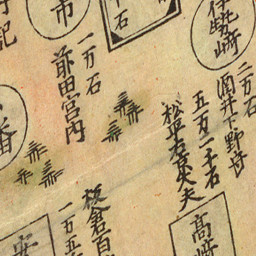 伊勢崎
二万石
酒井下野守
五万二千石
松平右京大夫
高崎
千石
市
一万石
前田宮内
板倉百
一万五
安
番